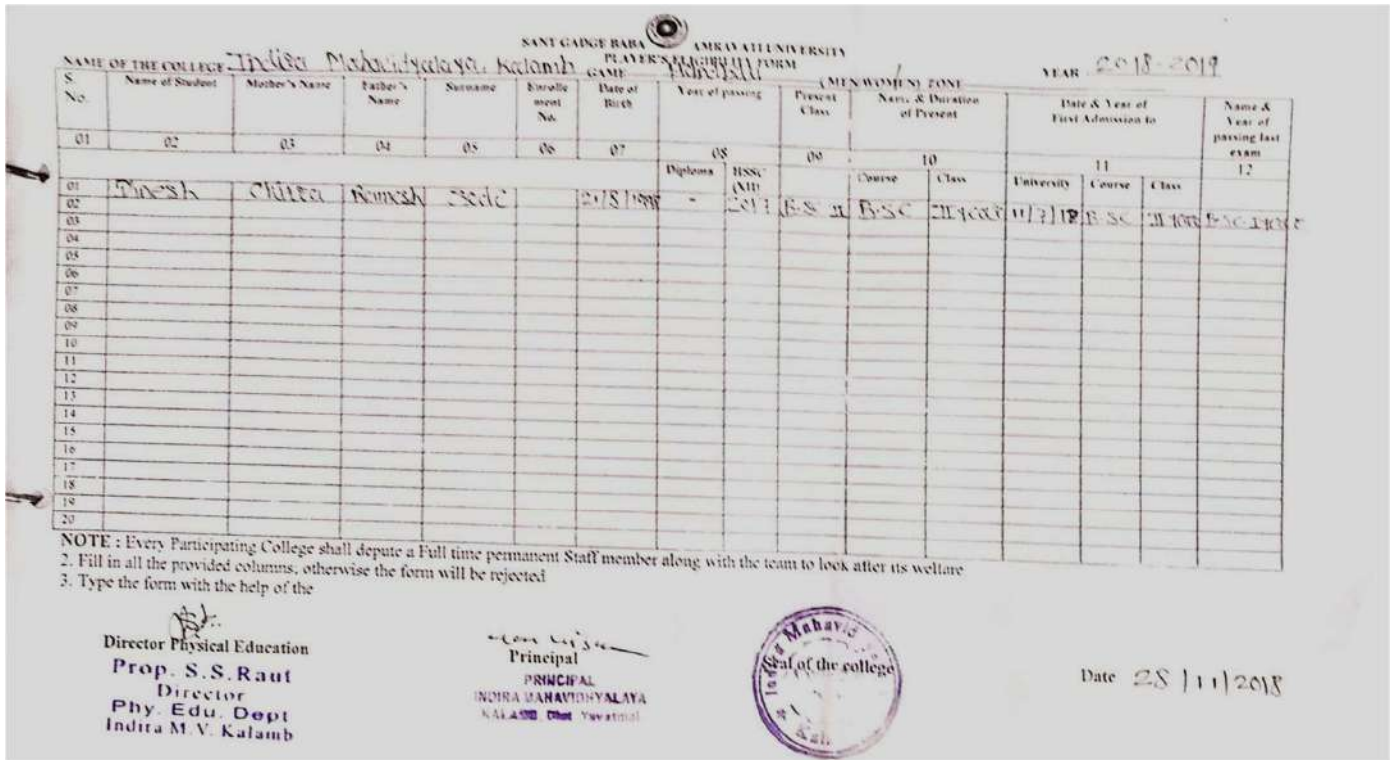 SANT GADGE BABA AMRAVATI UNIVERSITY
PLAYER'S ELIGIBILITY FORM
NAME OF THE COLLEGE Indira Mahavidyalaya, Kalamb GAME Handball (MEN/WOMEN) ZONE YEAR 2018-2019
S. No. Name of Student Mother's Name Father's Name Surname Enrollement No. Date of Birth Year of passing Present Class Name & Duration of Present Date & Year of First Admission to Name & Year of passing last exam
01 02 03 04 05 06 07 08 09 10 11 12
Diploma HSSC (XII) Course Class University Course Class
01 Dinesh Chitra Ramesh - 2017 B.S II B.SC II year 11/7/18 B.SC II year B.SC I year
02
03
04
05
06
07
08
09
10
11
12
13
14
15
16
17
18
19
20
NOTE : Every Participating College shall depute a Full time permanent Staff member along with the team to look after its welfare
2. Fill in all the provided columns, otherwise the form will be rejected
3. Type the form with the help of the
Director Physical Education
Prop. S.S.Raut
Director
Phy. Edu. Dept
Indira M.V. Kalamb
Principal
PRINCIPAL
INDIRA MAHAVIDHYALAYA
KALAMB, Dist Yavatmal
Indira Mahavid
Seal of the college
Date 28/11/2018